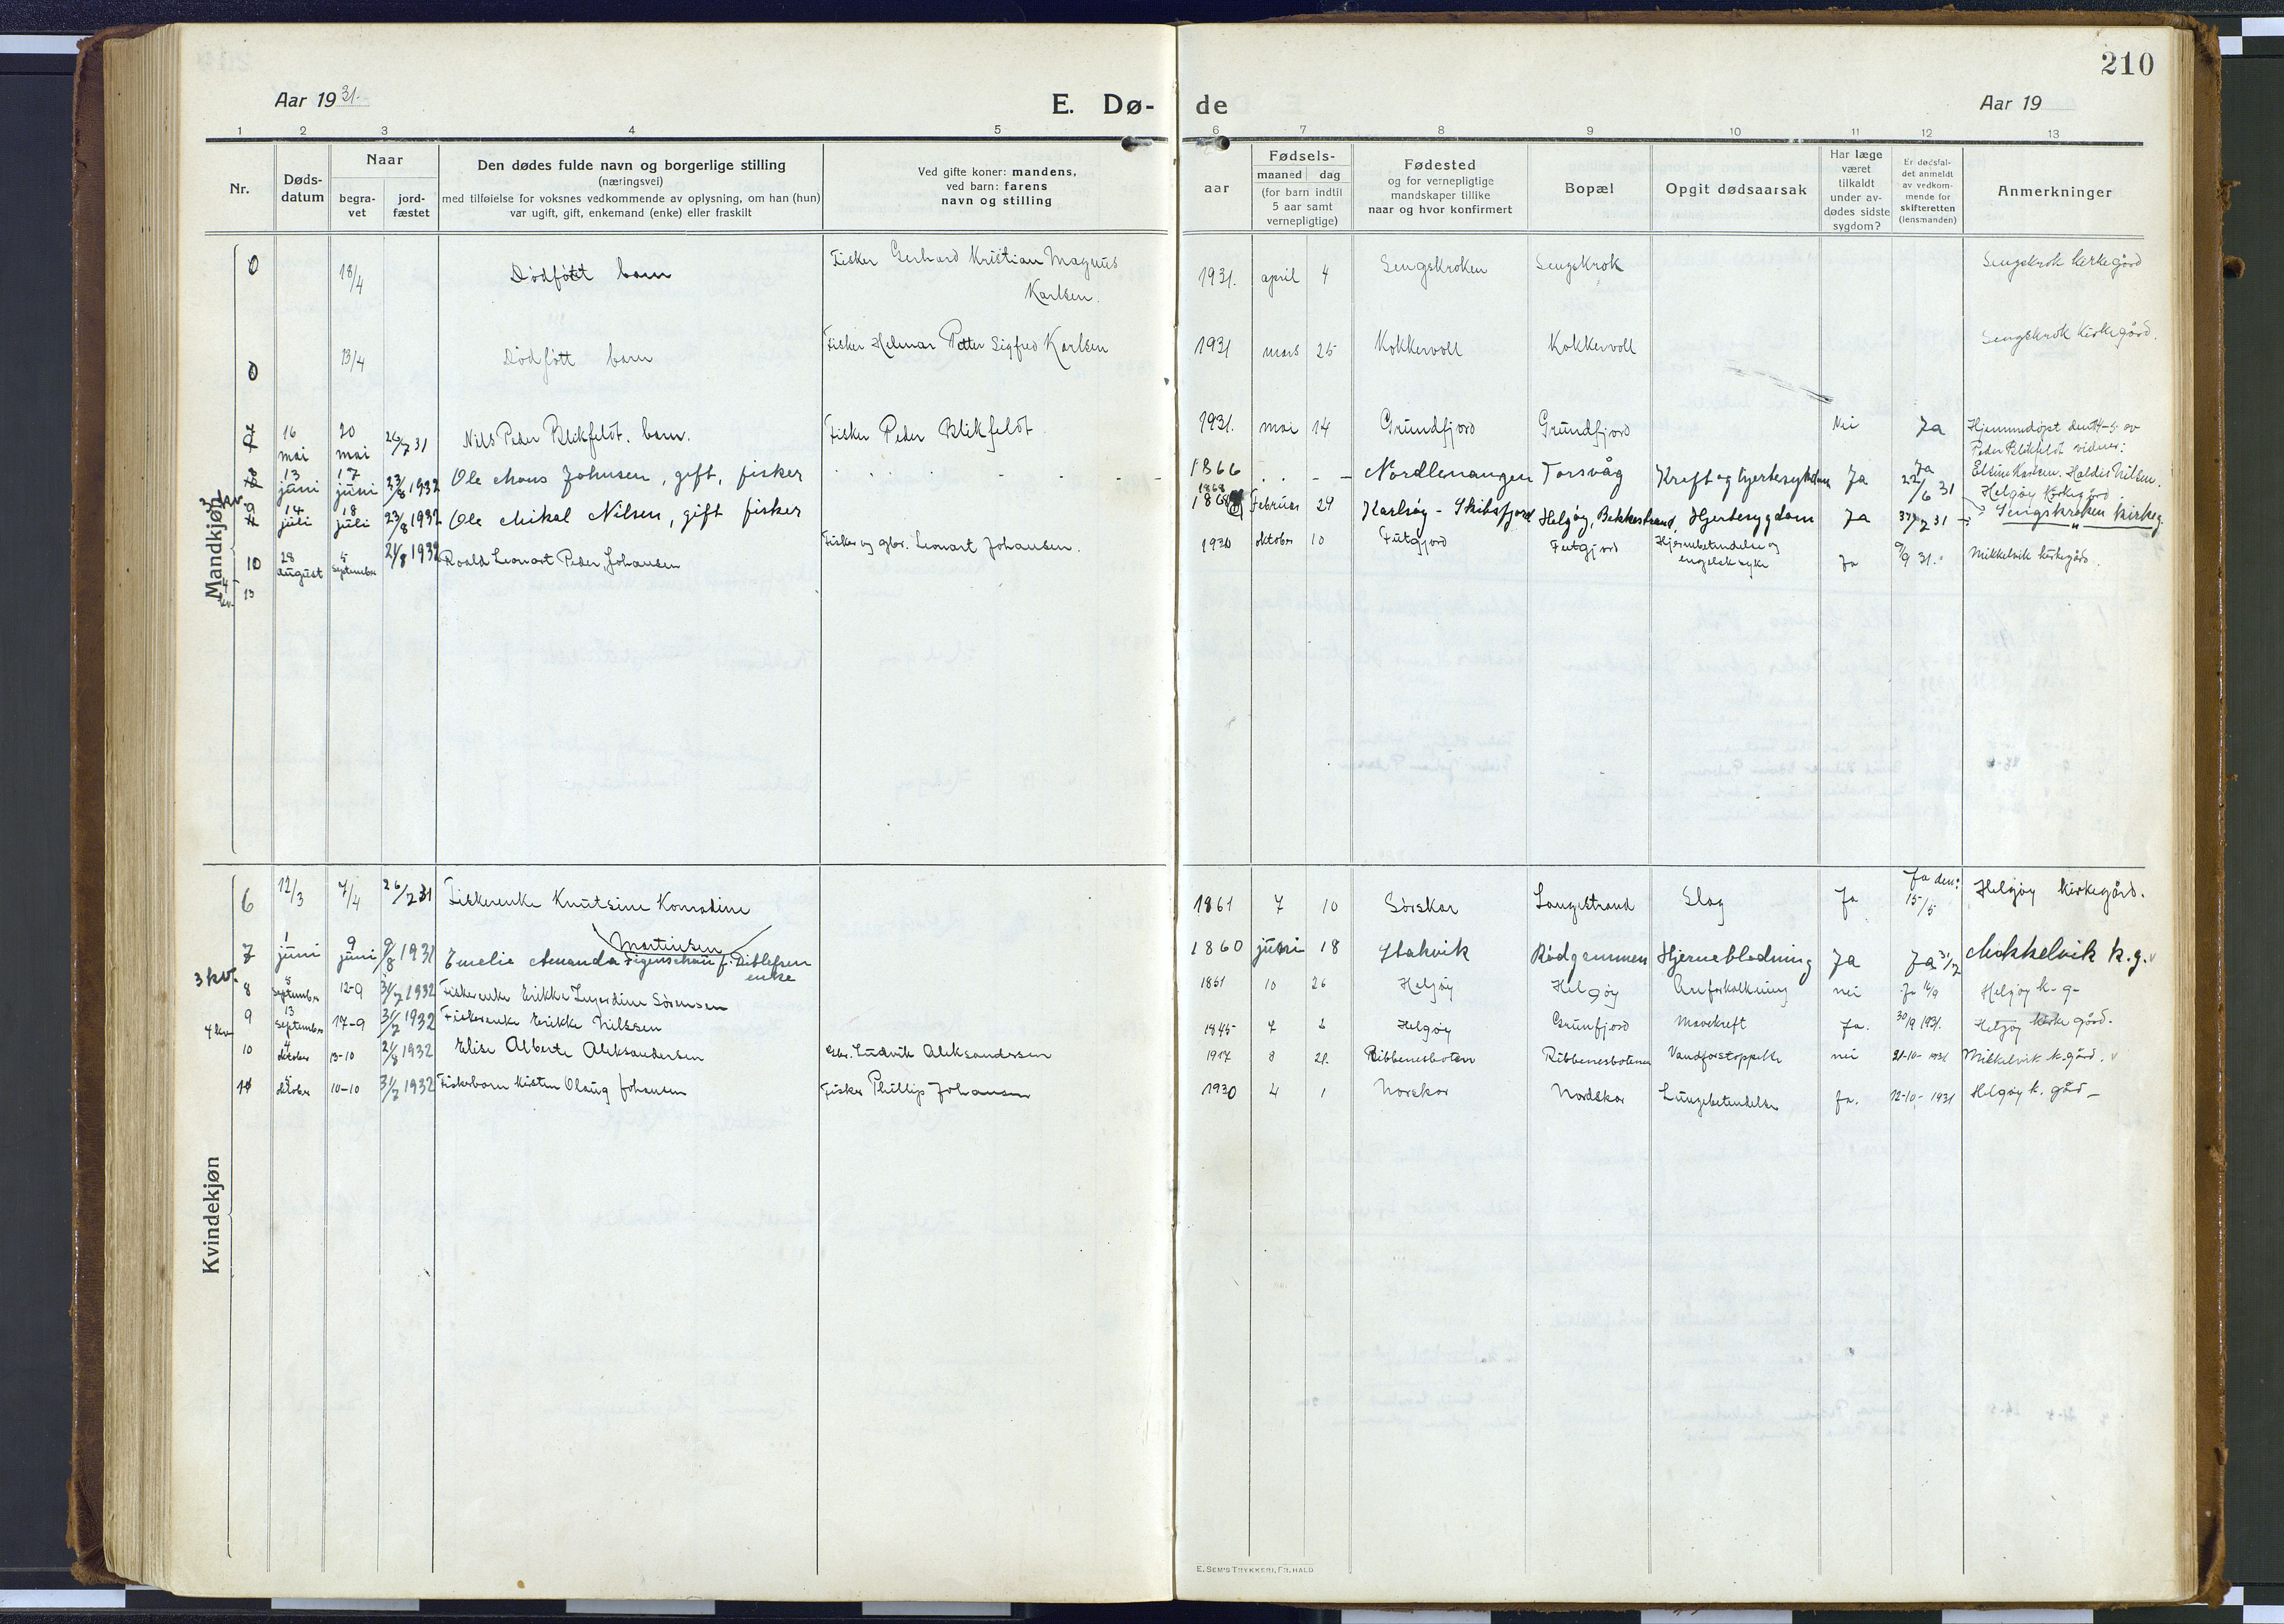 210
Aar 1931.
E. Dø-
de
Aar 19
1 2 3 4 5 6 7 8 9 10 11 12 13
Nr.
Døds-
datum
Naar
begra-
vet
jord-
fæstet
Den dødes fulde navn og borgerlige stilling
(næringsvei)
med tilføielse for voksnes vedkommende av oplysning, om han (hun)
var ugift, gift, enkemand (enke) eller fraskilt
Ved gifte koner: mandens,
ved barn: farens
navn og stilling
aar
Fødsels-
maaned dag
(for barn indtil
5 aar samt
vernepligtige)
Fødested
og for vernepligtige
mandskaper tillike
naar og hvor konfirmert
Bopæl
Opgit dødsaarsak
Har læge
været
tilkaldt
under av-
dødes sidste
sygdom?
Er dødsfal-
det anmeldt
av vedkom-
mende for
skifteretten
(lensmanden)
Anmerkninger
Mandkjøn
0 18/4 Dödfött barn Fisker Gerhard Kristian Magnus Karlsen. 1931. april 4 Sengskroken Sengskrok Sengskrok kirkegård
0 13/4 Dödfött barn Fisker Helmar Petter Sigfred Karlsen 1931 mars 25 Kokkervoll Kokkervoll Sengskrok kirkegård.
16 mai 20 mai 26/7 31 Nils Peder Blikfeldt. barn. Fisker Peder Blikfeldt 1931. mai 14 Grundfjord Grundfjord Nei Ja Hjemmedöpt den 14-5 av
Peder Blikfeldt vidner:
13 juni 17 juni 23/8 1932 Ole Mons Johnsen, gift, fisker 1866 Nordlenangen Torsvåg Kreft og hjertesykdom Ja Ja 22/6 31 Elsine Karlsen. Haldis Nilsen.
Helgöy Kirkegård
14 juli 18 juli 23/8 1932 Ole Mikal Nilsen, gift fisker 1868 Februar 29 Karlsöy - Skibsfjord Helgöy, Bekkestrand, Hjertesygdom Ja 31 Sengskroken kirkeg.
10 28 august 5 september 21/8 1932 Roald Leonart Peder Johansen Fisker og gbr. Leonart Johansen. 1930 oktober 10 Futgjord Futgjord Hjernebetendelse og
engelsk syke Ja 9/9 31. Mikkelvik kirkegård.
Kvindekjøn
6 12/3 7/4 26/7 31 Fiskerenke Knutsine Konradine
Martinsen 1861 7 10 Sörskar Langestrand Slag Ja Ja den: 15/5 Helgöy kirkegård.
7 1 juni 9 juni 9/8 1931 Emelie Amanda Figenschau f. Ditlefsen
enke 1860 juni 18 Stakvik Rödgammen Hjerneblödning Ja Ja 31/7 Mikkelvik k.g.
3 kv.
8 5 september 12-9 31/7 1932 Fiskerenke Erikke Ingerdine Sörensen 1851 10 26 Helgöy Helgöy Åreforkalkning nei Ja 16/9 Helgöy k-g-
4 kv.
9 13 september 17-9 31/7 1932 Fiskerenke Erikke Nilssen 1845 7 Helgöy Grunfjord Mavekreft Ja. 30/9 1931. Helgöy kirkegård.
10 4 oktober 13-10 21/8 1932 Elise Alberte Aleksandersen Gbr. Ludvik Aleksandersen 1917 8 21. Ribbenesboten Ribbenesboten Vandforstoppelse nei 21-10-1931 Mikkelvik k.gård.
11 5 oktober 10-10 31/7 1932 Fiskerbarn Kirsten Olaug Johansen Fisker Phillip Johansen 1930 4 1 Norskar Nordskar Lungebetendelse Ja. 12-10-1931 Helgöy k. gård-
E. SEM'S TRYKKERI, FR.HALD